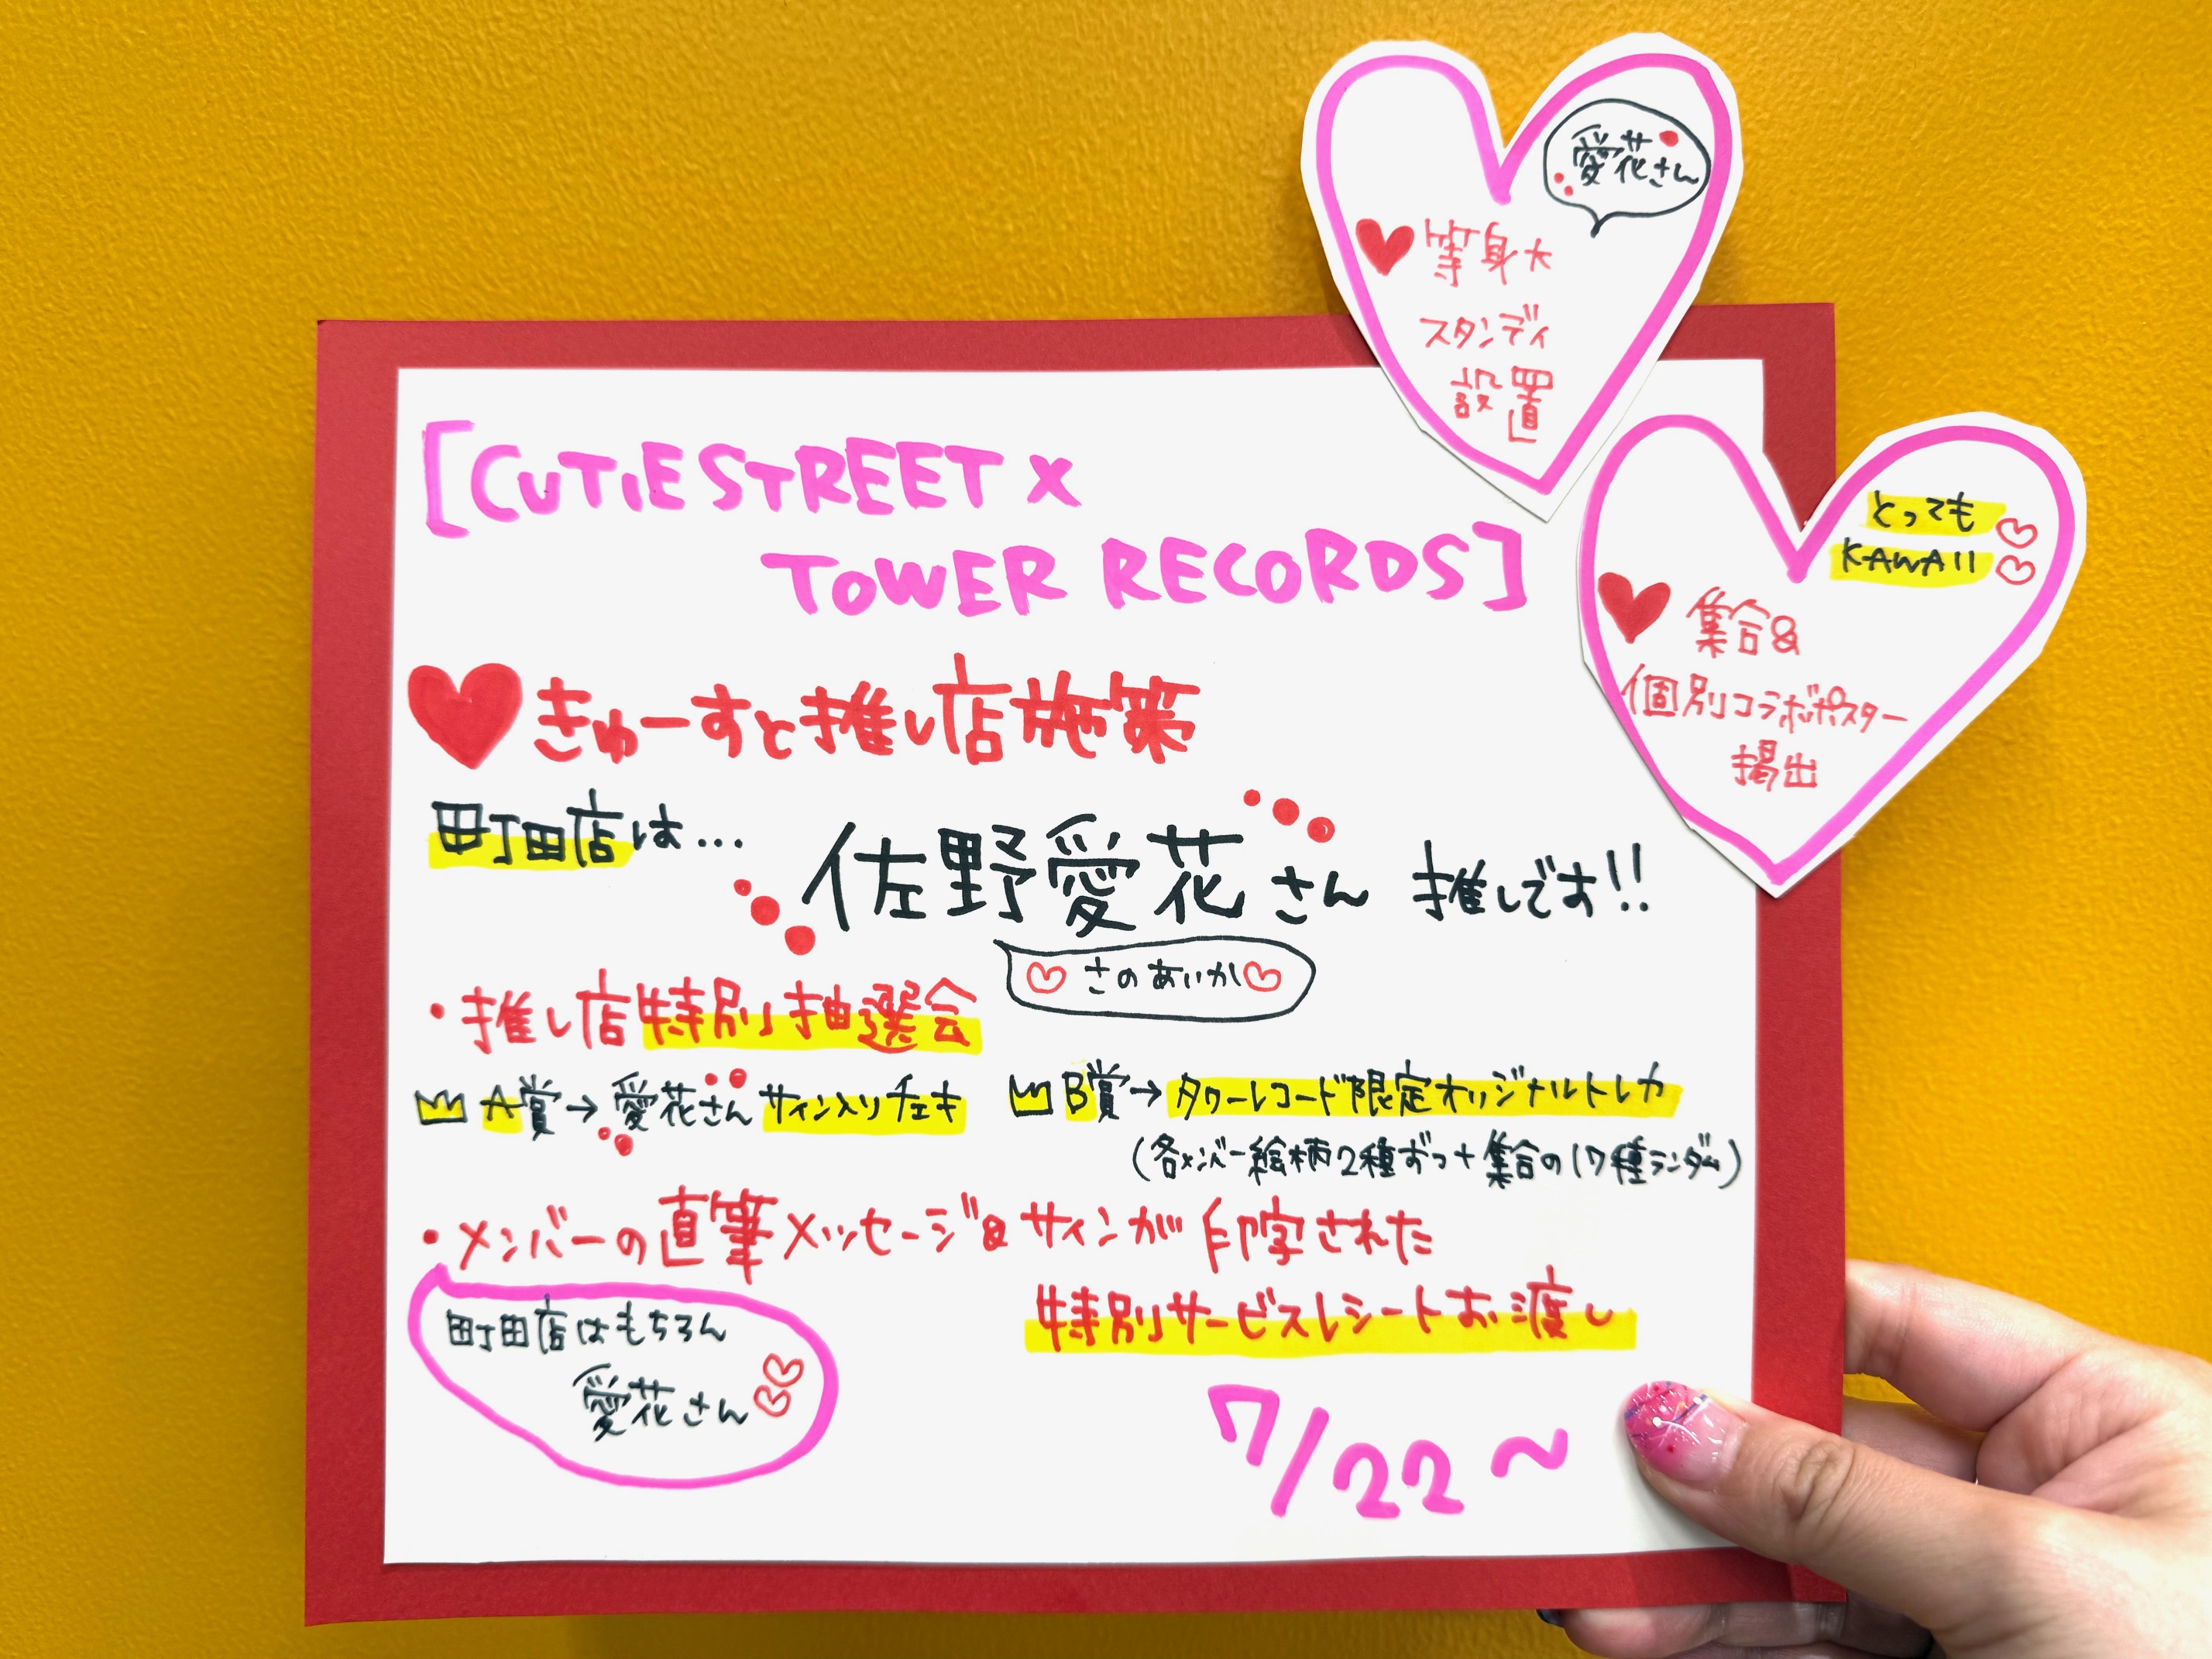 [CUTIE STREET X
TOWER RECORDS]
♥きゅーすと推し店施策
町田店は…
佐野愛花さん 推しです!!
♡さのあいか♡
・推し店特別抽選会
A賞→愛花さんサイン入りチェキ
B賞→タワーレコード限定オリジナルトレカ
(各メンバー絵柄2種ずつ+集合の17種ランダム)
・メンバーの直筆メッセージ&サインが印字された
特別サービスレシートお渡し
町田店はもちろん
愛花さん♡♡
7/22～
愛花さん
♥等身大
スタンディ
設置
とっても♡
KAWAII♡
♥集合&
個別コラボポスター
掲出